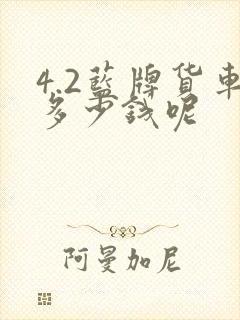 4.2蓝牌货車
多少钱呢
阿曼加尼